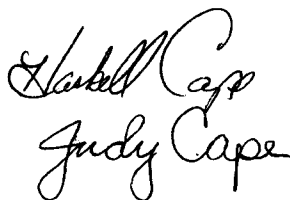 Haskell Cape
Judy Cape